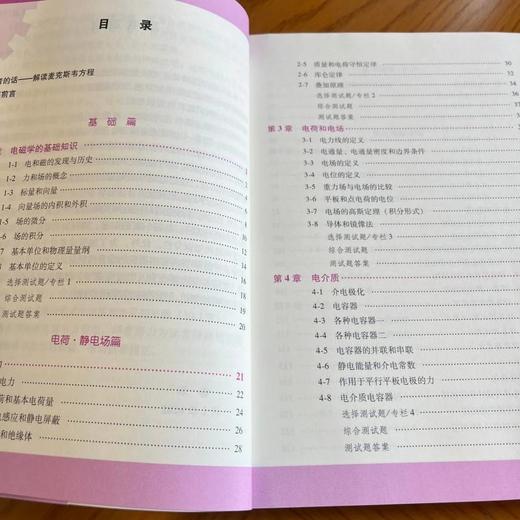 目 录
的话——解读麦克斯韦方程
前言
基础篇
电磁学的基础知识
1-1 电和磁的发现与历史
1-2 力和场的概念
1-3 标量和向量
1-4 向量场的内积和外积
-5 场的微分
-6 场的积分
7 基本单位和物理量量纲 14
8 基本单位的定义 16
选择测试题/专栏 1 18
综合测试题 19
测试题答案 20
电荷·静电场篇
21
电力 22
荷和基本电荷量 24
感应和静电屏蔽 26
和绝缘体 28
2-5 质量和电荷守恒定律 30
2-6 库仑定律 32
2-7 叠加原理 34
选择测试题/专栏 2 36
综合测试题
测试题答案
第 3 章 电荷和电场
3-1 电力线的定义
3-2 电通量、电通量密度和边界条件
3-3 电场的定义
3-4 电位的定义
3-5 重力场与电场的比较
3-6 平板和点电荷的电位
3-7 电场的高斯定理（积分形式）
3-8 导体和镜像法
选择测试题/专栏 3
综合测试题
测试题答案
第 4 章 电介质
4-1 介电极化
4-2 电容器
4-3 各种电容器一
4-4 各种电容器二
4-5 电容器的并联和串联
4-6 静电能量和介电常数
4-7 作用于平行平板电极的力
4-8 电介质电容器
选择测试题/专栏 4
综合测试题
测试题答案